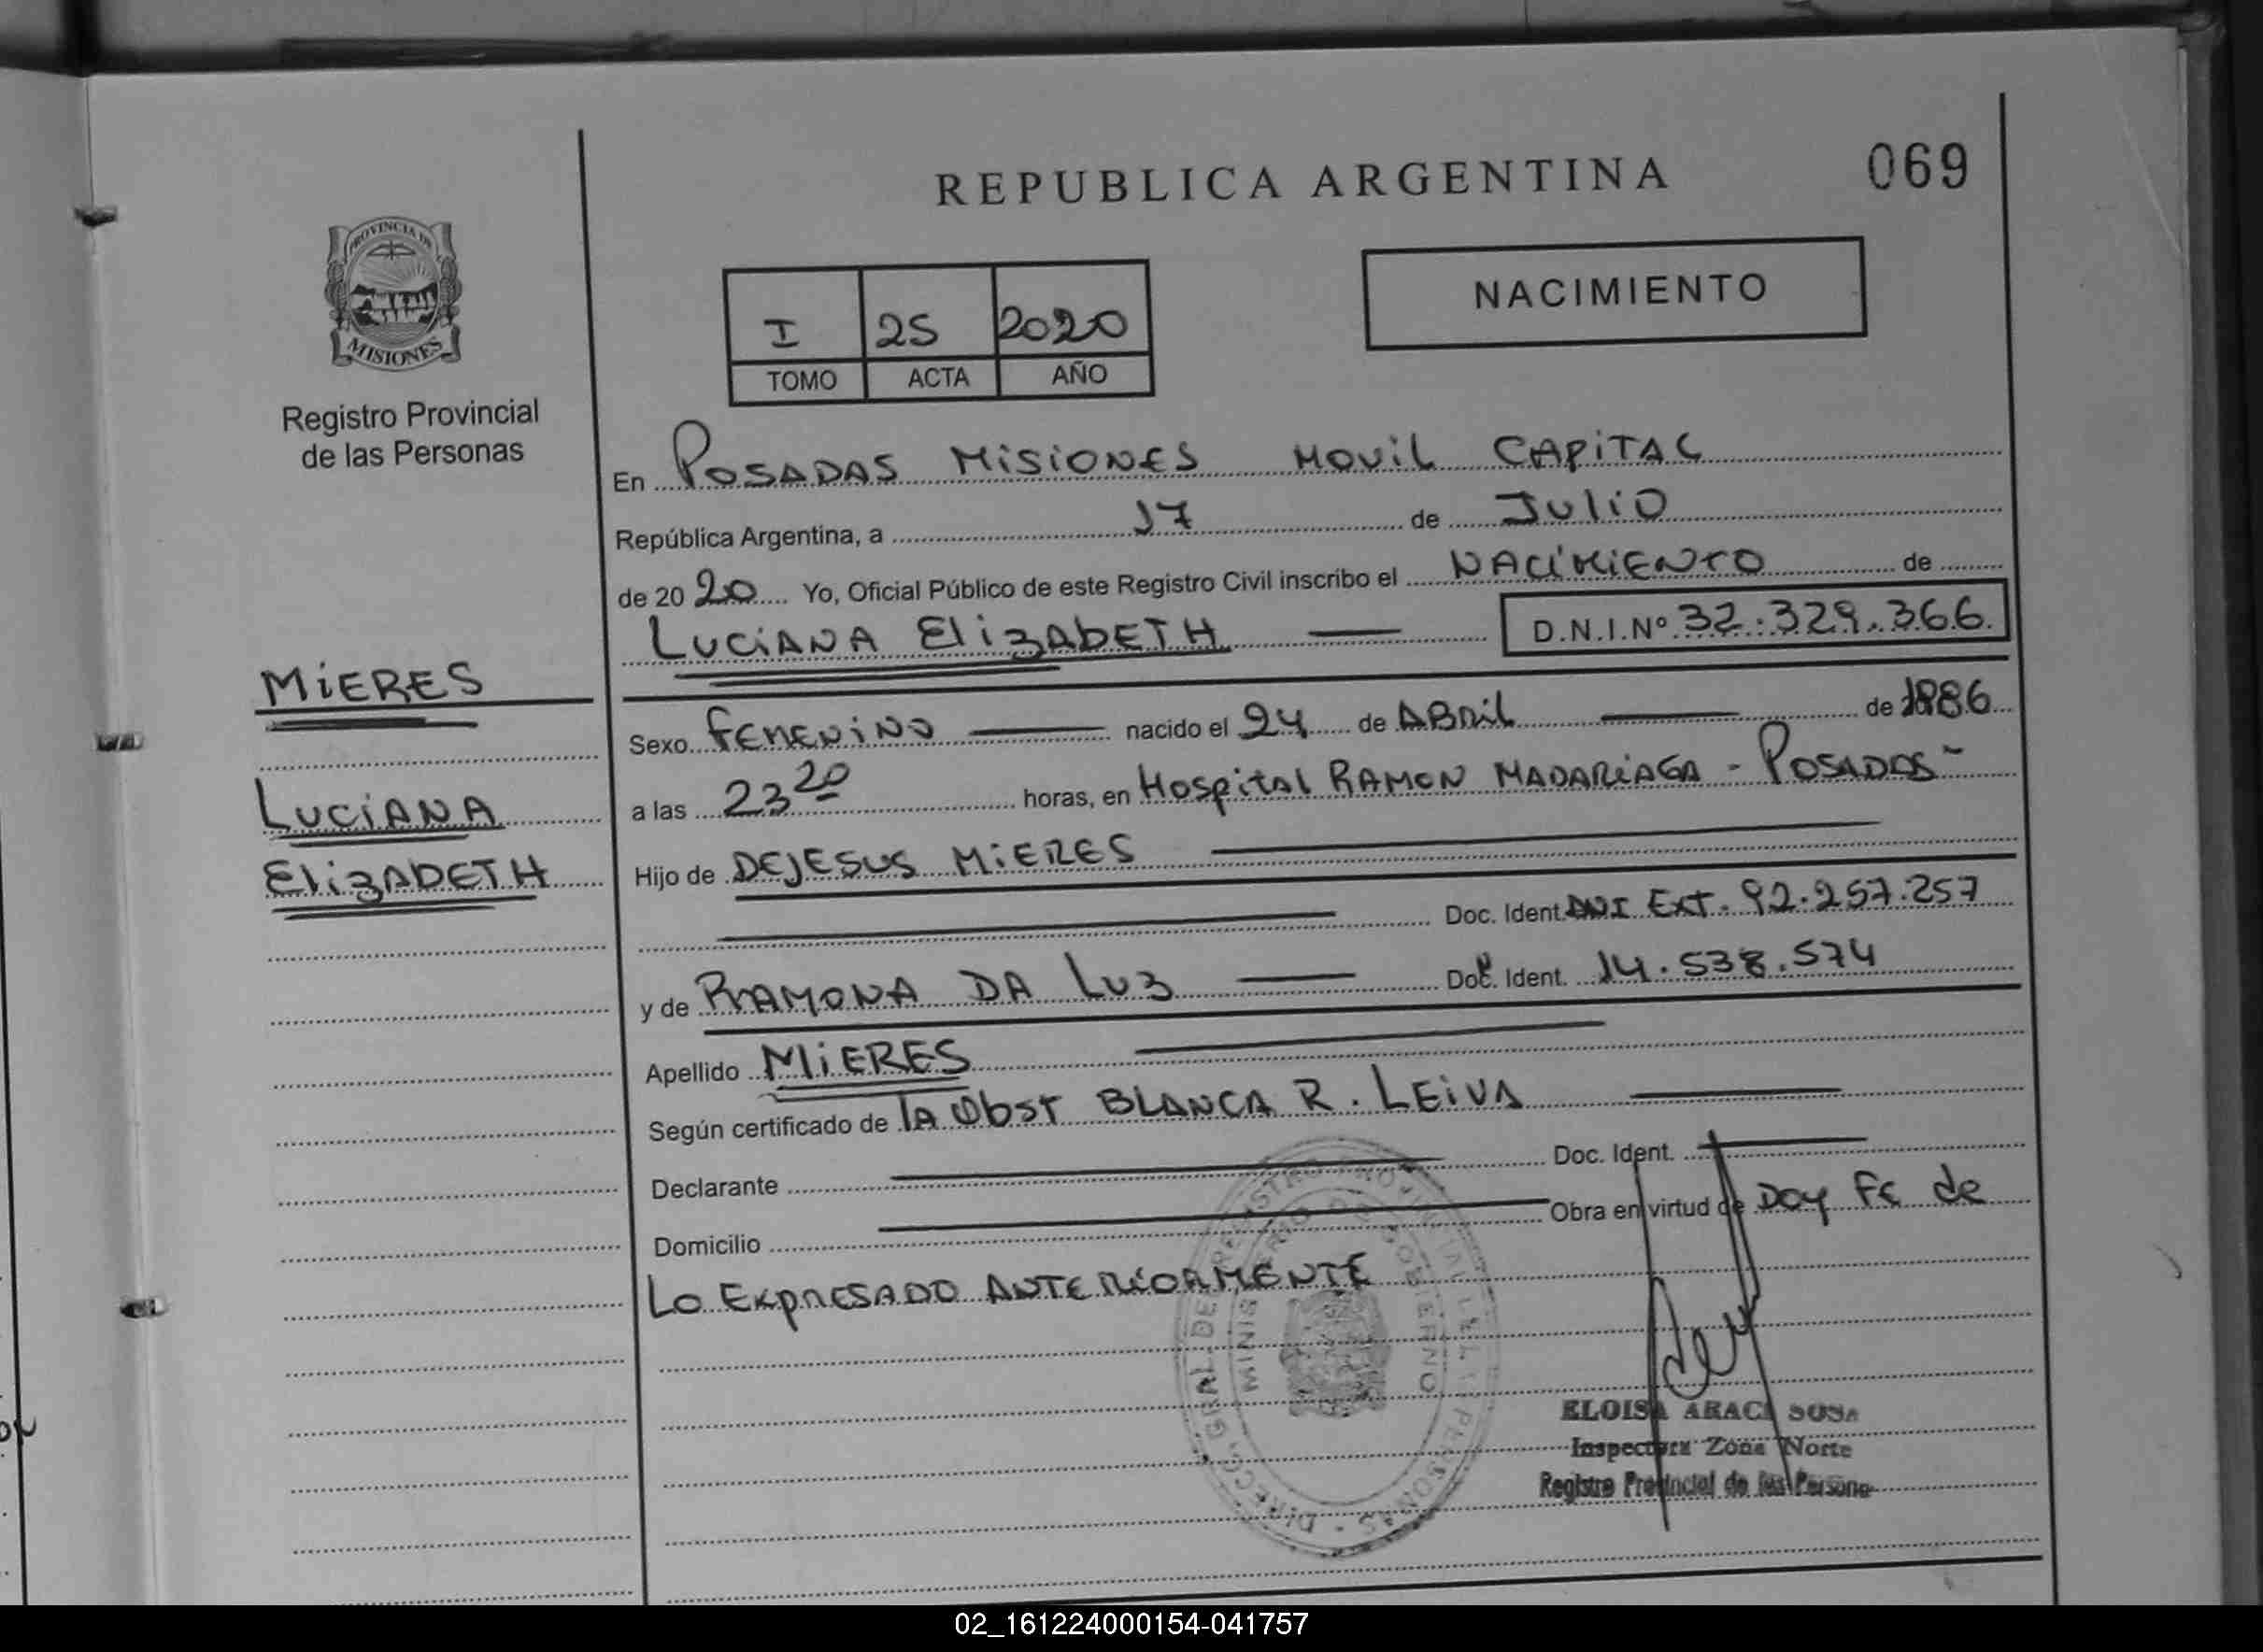 REPUBLICA ARGENTINA
069
PROVINCIA DE
MISIONES
Registro Provincial
de las Personas
NACIMIENTO
I 25 2020
TOMO ACTA AÑO
En POSADAS MISIONES MOVIL CAPITAL
República Argentina, a 17 de JULIO
de 2020 Yo, Oficial Público de este Registro Civil inscribo el NACIMIENTO de
LUCIANA ElizAbETH D.N.I.Nº 32.329.366
MIERES
LUCIANA
ElizABETH
Sexo FEMENINO nacido el 24 de ABRil de 1986
a las 23 20 horas, en Hospital RAMON MADARIAGA - POSADAS -
Hijo de DEJESUS MIERES
Doc. Ident. DNI Ext. 92.257.257
y de RAMONA DA LUZ Doc. Ident. 14.538.574
Apellido MIERES
Según certificado de lA Obst BLANCA R. LEIVA
Declarante Doc. Ident.
Domicilio Obra en virtud de Doy Fe de
LO EXPRESADO ANTERIORMENTE
DIRECC. GRAL. DEL REGISTRO PROVINCIAL DE LAS PERSONAS
MINISTERIO DE GOBIERNO
ELOISA ARACI SOSA
Inspectora Zona Norte
Registro Provincial de las Persona
02_161224000154-041757